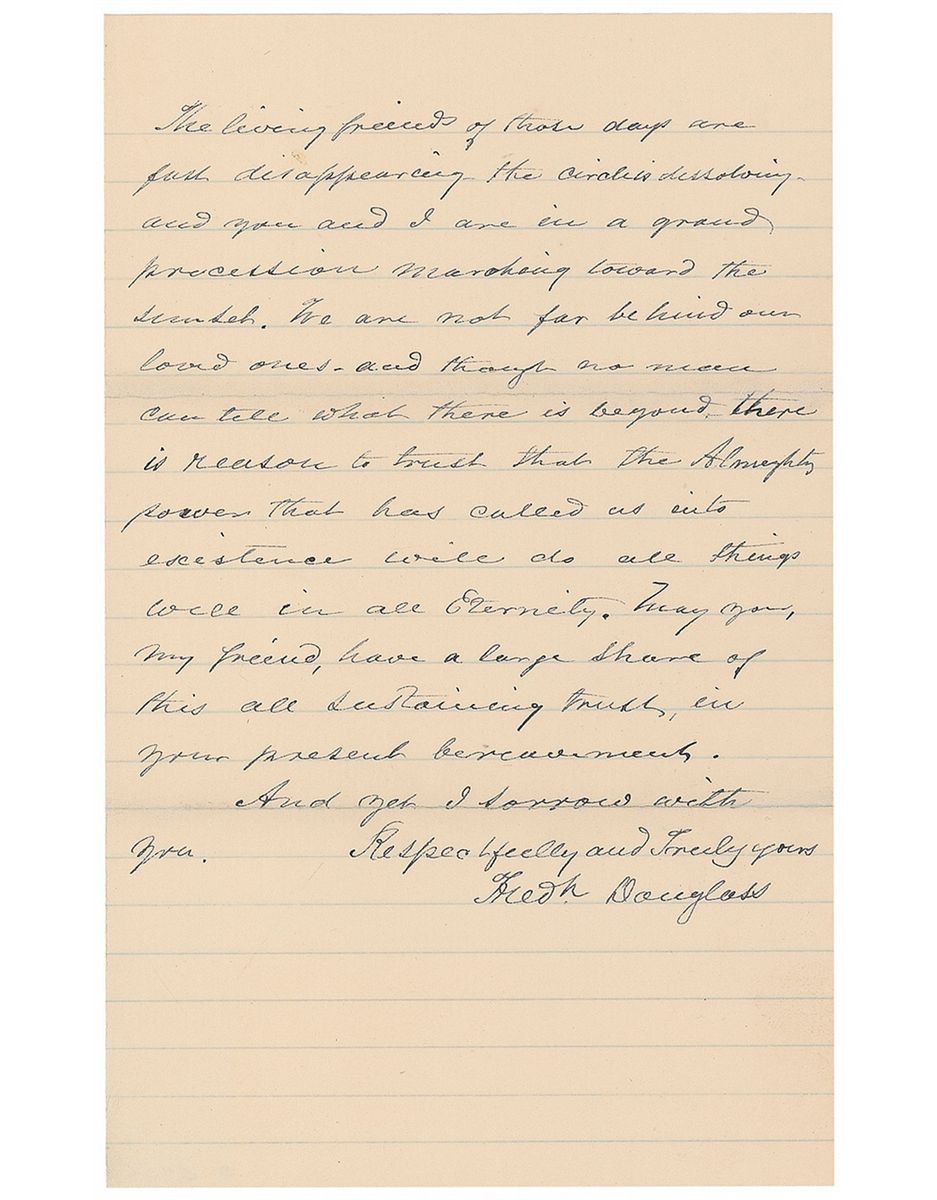 The living friends of those days are
fast disappearing - the circle is dissolving -
and you and I are in a grand
procession marching toward the
sunset. We are not far behind our
loved ones - and though no man
can tell what there is beyond, there
is reason to trust that the Almighty
power that has called us into
existence will do all things
well in all Eternity. May you,
my friend, have a large share of
this all sustaining trust, in
your present bereavement.
And yet I sorrow with
you. Respectfully and Truly yours
Fredk Douglass